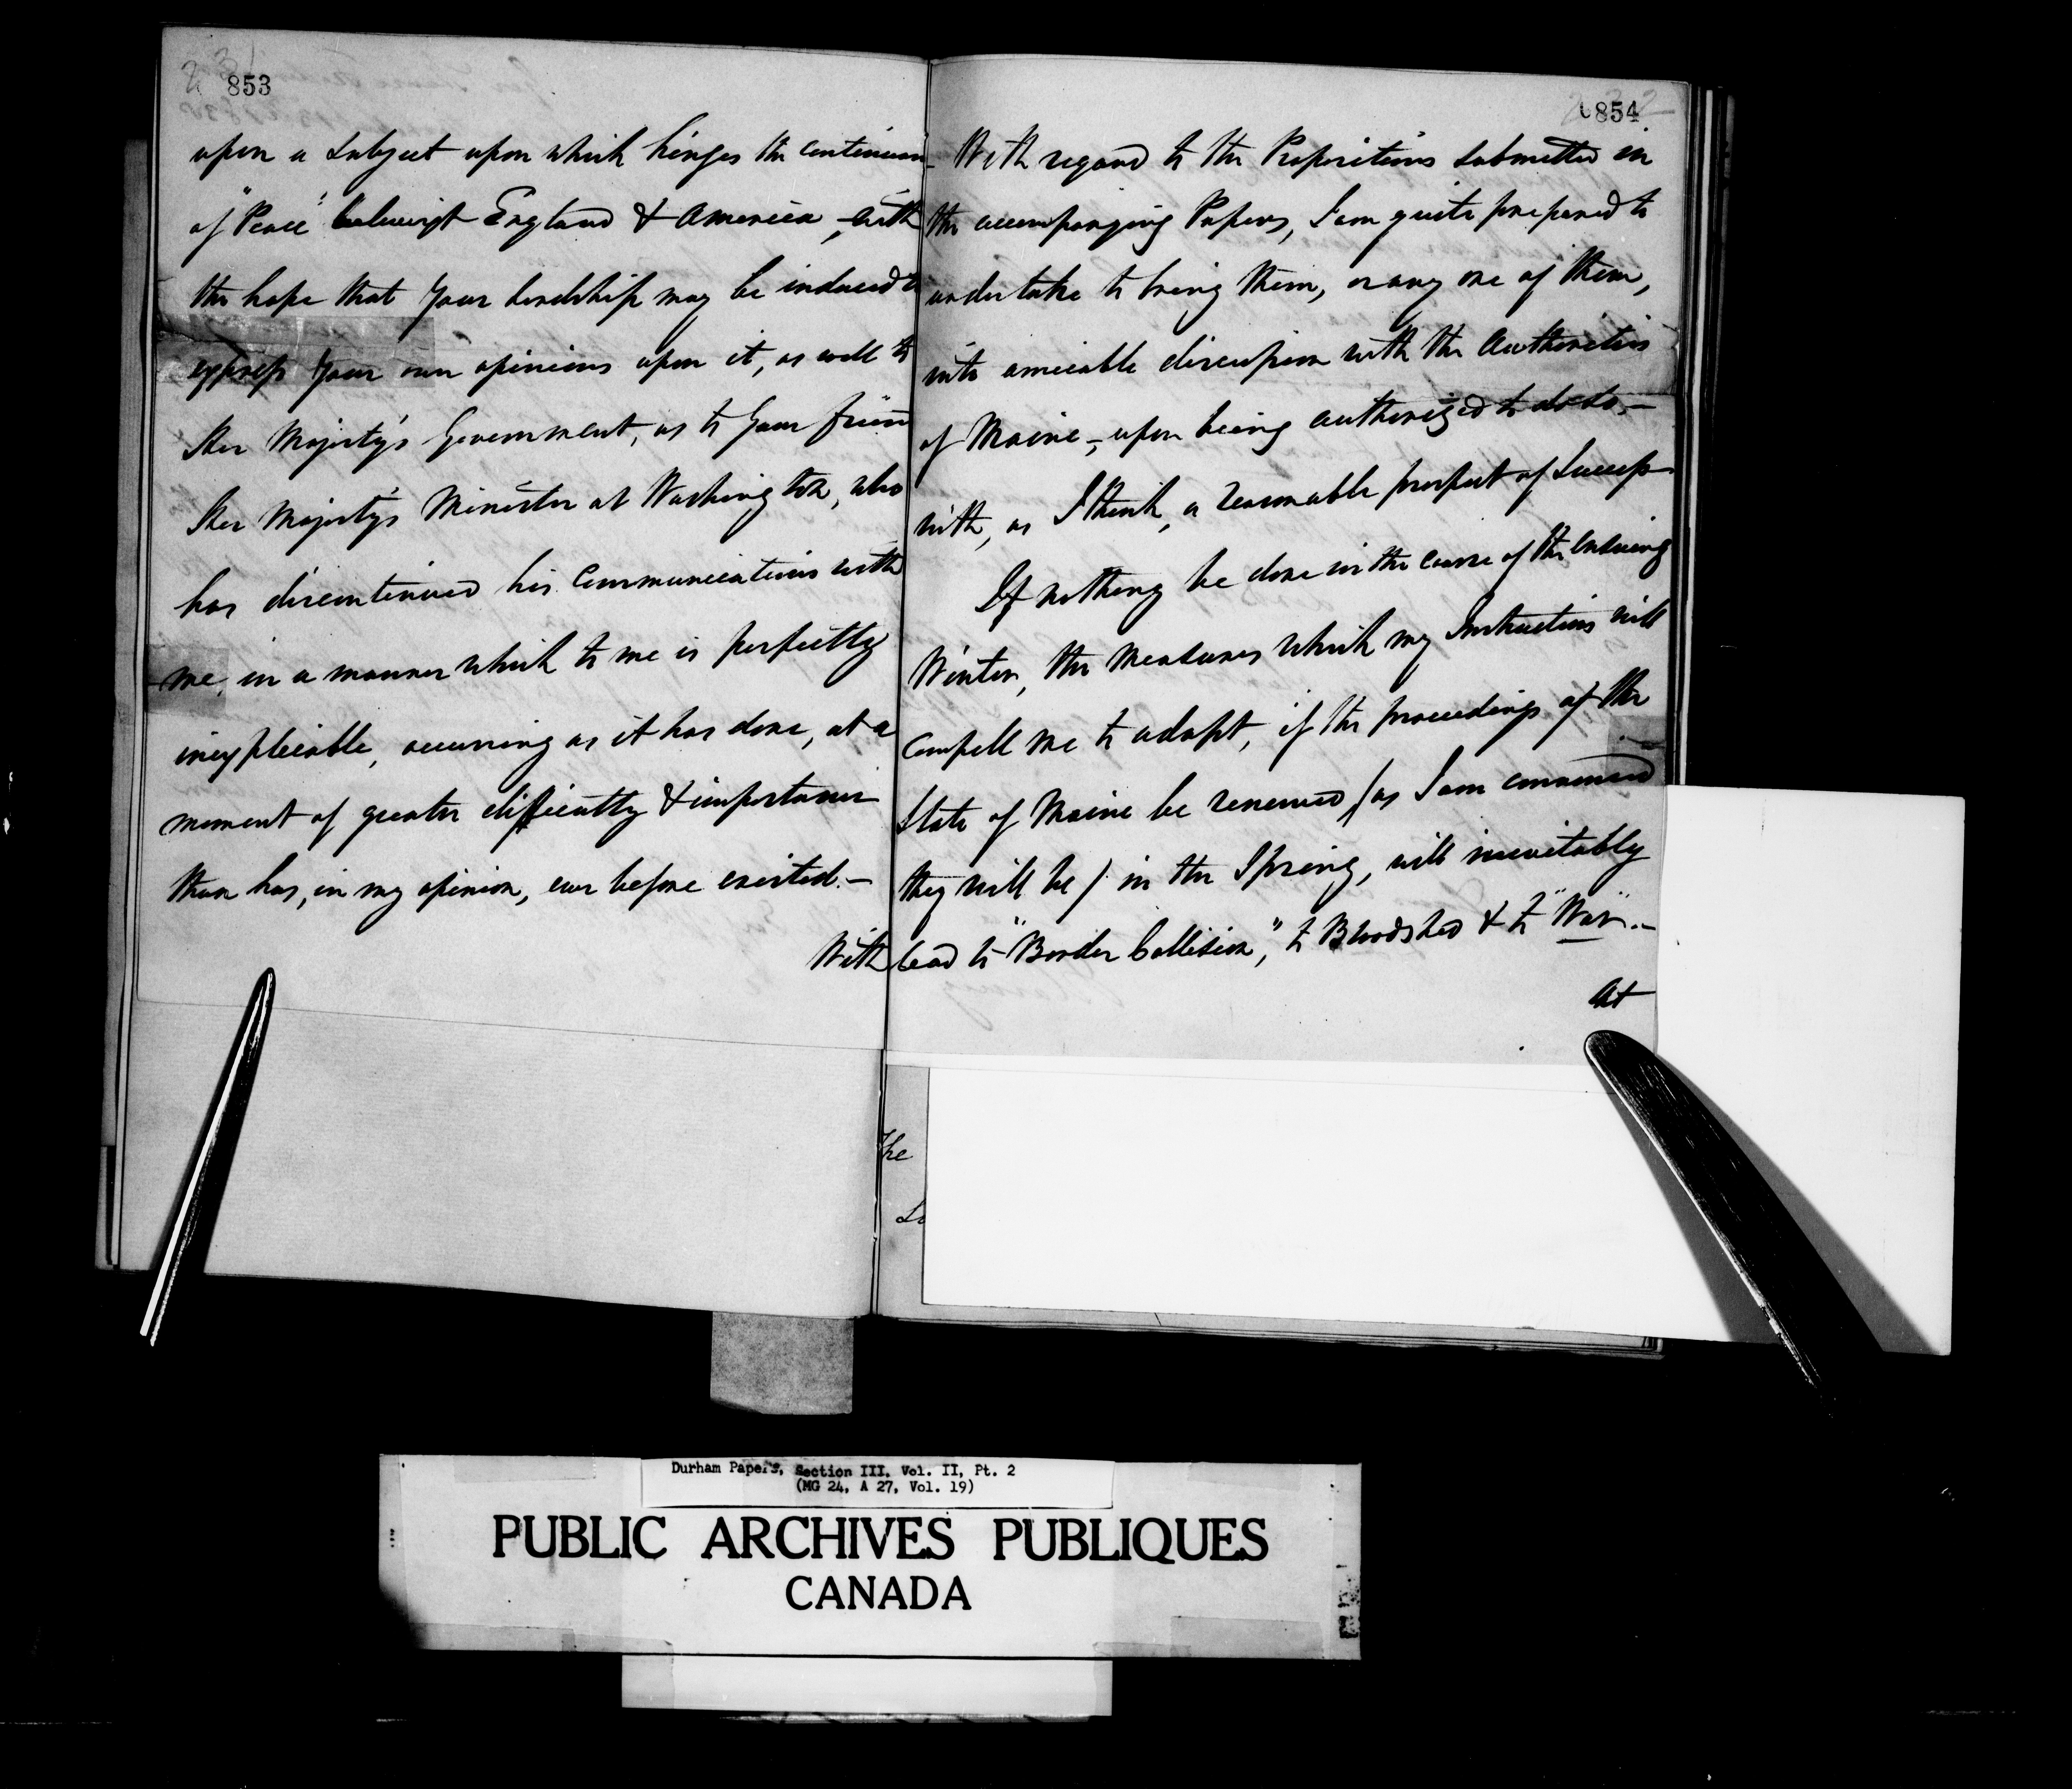 853
upon a Subject upon which hinges the continuan-
of "Peace" betwixt England & America, with
the hope that Your Lordship may be induced to
express Your own opinions upon it, as well to
Her Majesty's Government, as to Your friend
Her Majesty's Minister at Washington, who
has discontinued his Communications with
me, in a manner which to me is perfectly
inexplicable, occurring as it has done, at a
moment of greater difficulty & importance
than has, in my opinion, ever before existed.—
With
854
With regard to the Propositions submitted in
the accompanying Papers, I am quite prepared to
undertake to bring them, or any one of them,
into amicable discussion with the Authorities
of Maine, upon being authorized to do so,—
with, as I think, a reasonable prospect of Success
If nothing be done in the course of the ensuing
Winter, the Measures which my Instructions will
compell me to adopt, if the proceedings of the
State of Maine be renewed (as I am convinced
they will be) in the Spring, will inevitably
lead to "Border Collision", to Bloodshed & to "War".—
At
The
Durham Papers, Section III, Vol. II, Pt. 2
(MG 24, A 27, Vol. 19)
PUBLIC ARCHIVES PUBLIQUES
CANADA